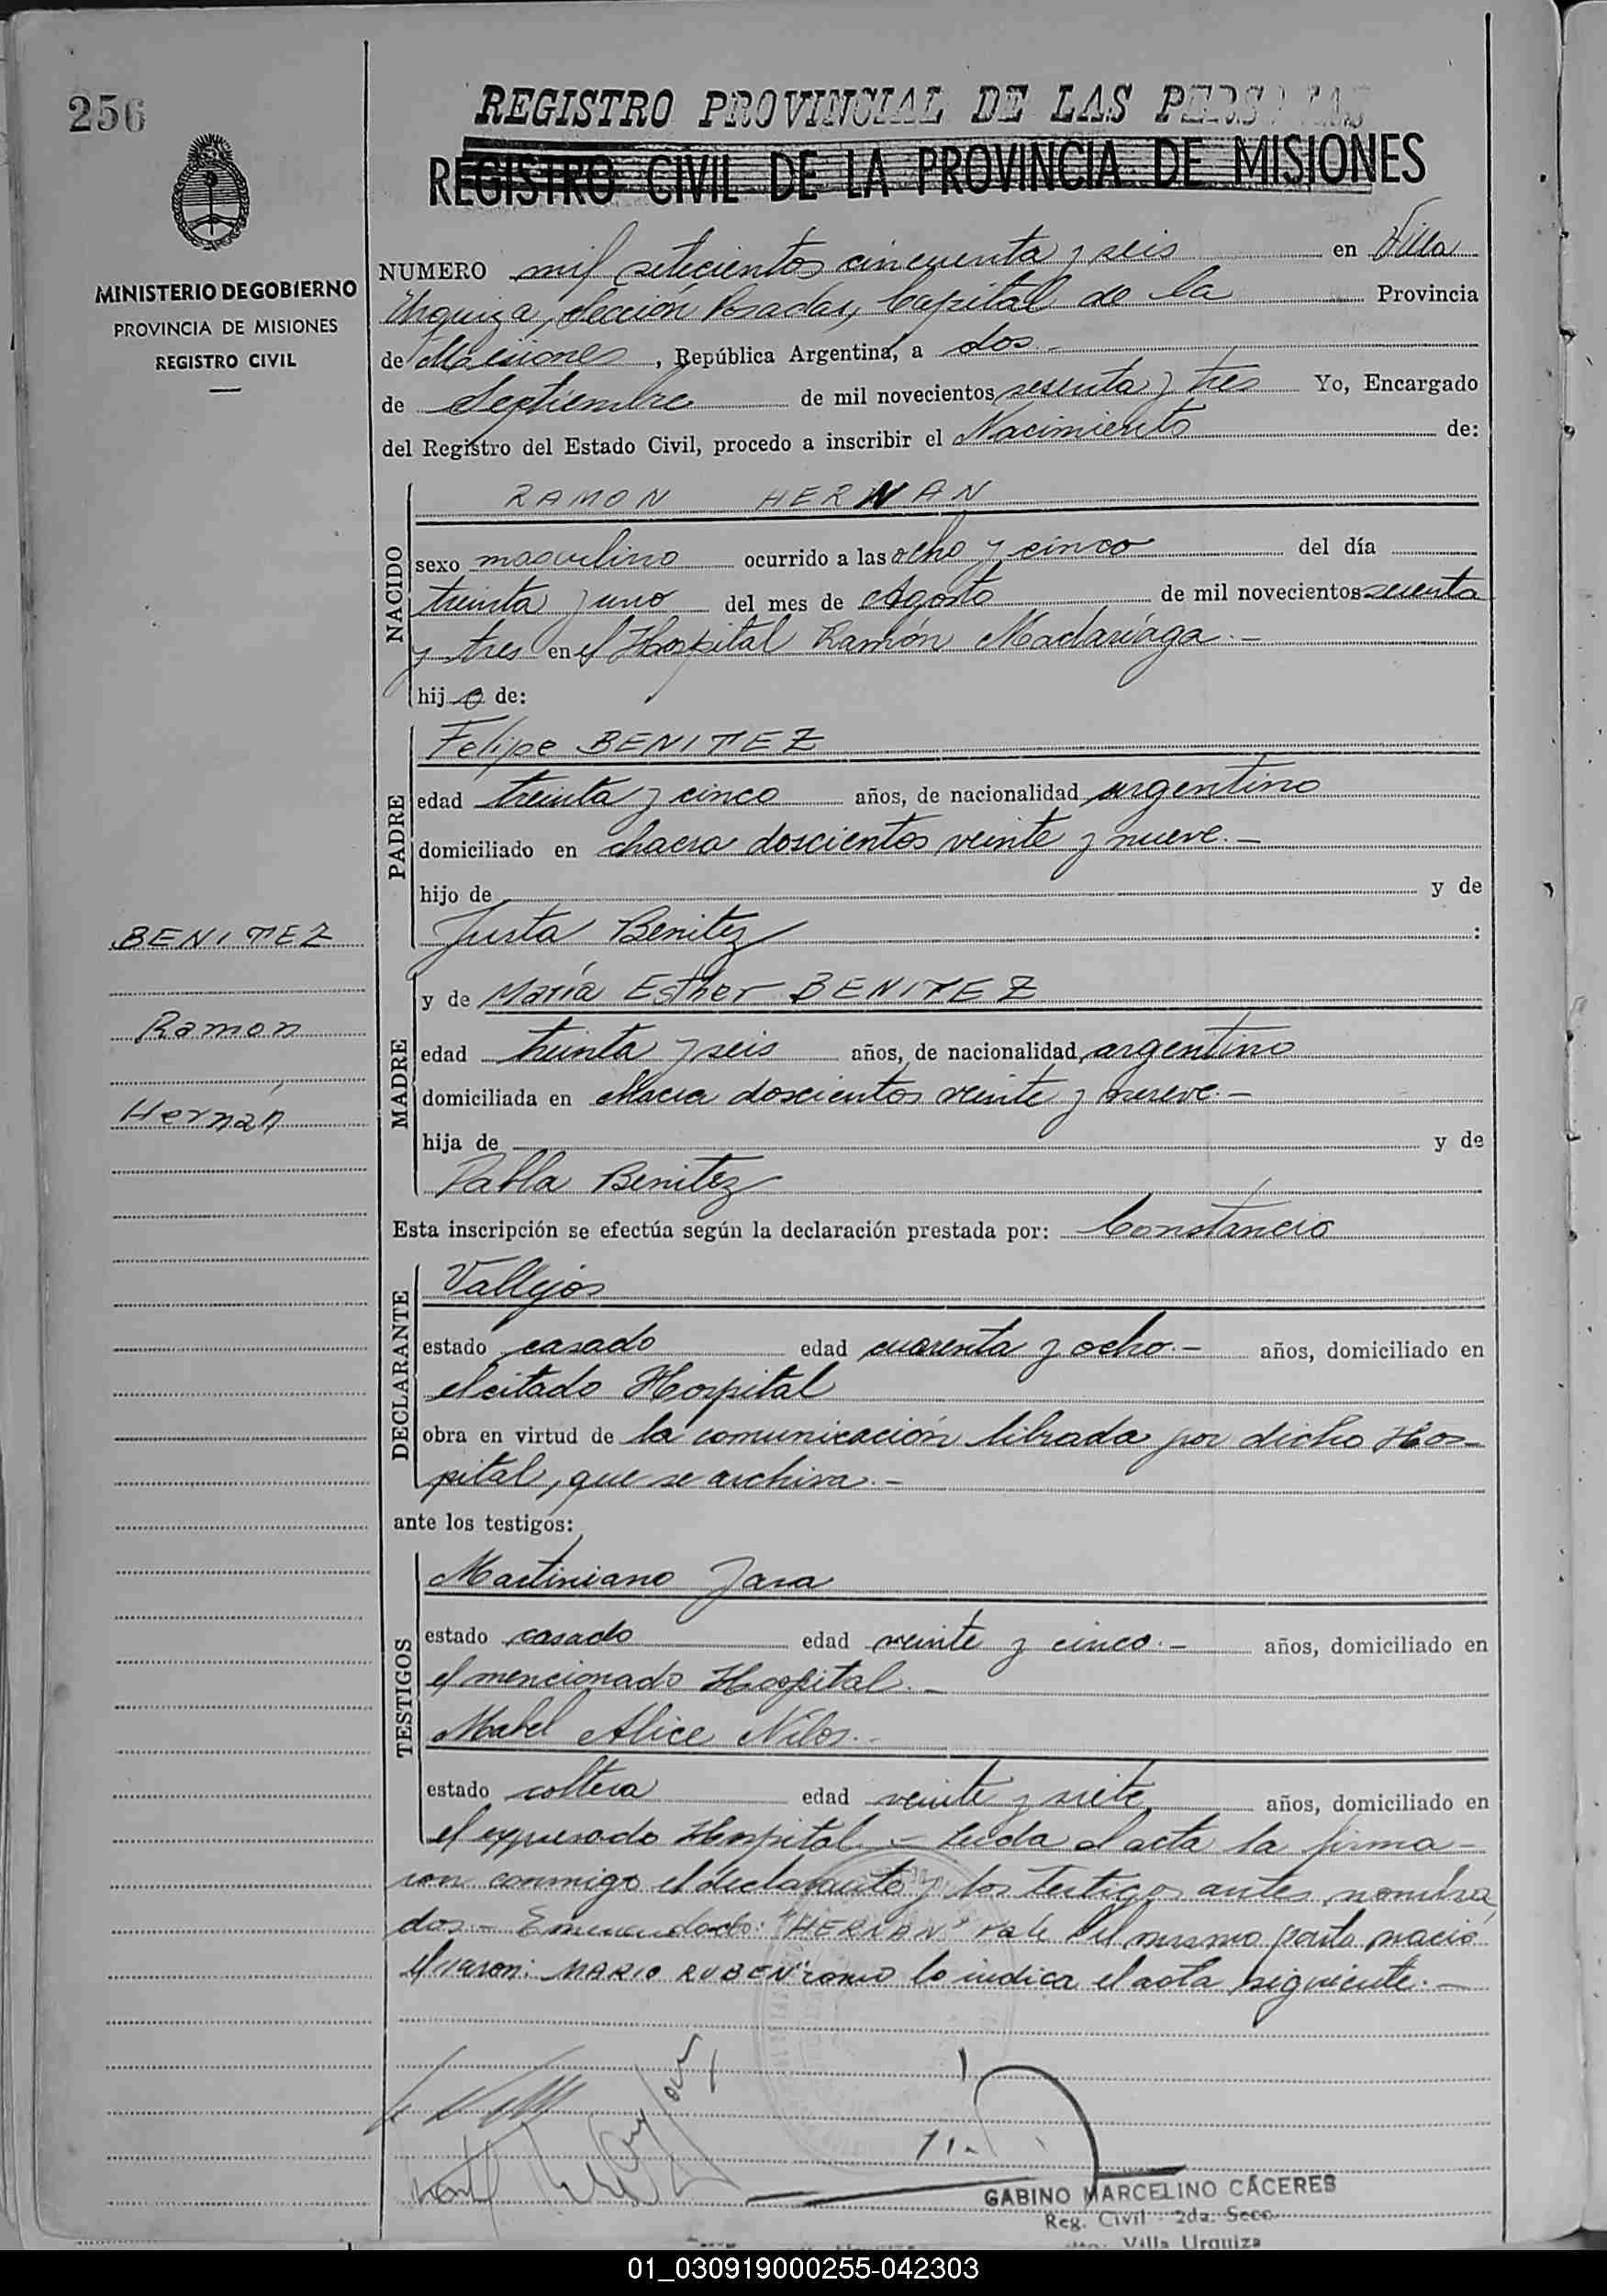 256
REGISTRO PROVINCIAL DE LAS PERSONAS
REGISTRO CIVIL DE LA PROVINCIA DE MISIONES
MINISTERIO DE GOBIERNO
PROVINCIA DE MISIONES
REGISTRO CIVIL
NUMERO mil setecientos cincuenta y seis en Villa
Urquiza, Sección Posadas, Capital de la Provincia
de Misiones, República Argentina, a dos
de Septiembre de mil novecientos sesenta y tres Yo, Encargado
del Registro del Estado Civil, procedo a inscribir el Nacimiento de:
NACIDO
RAMON HERNAN
sexo masculino ocurrido a las ocho y cinco del día
treinta y uno del mes de Agosto de mil novecientos sesenta
y tres en el Hospital Ramón Madariaga.-
hijo de:
PADRE
Felipe BENITEZ
edad treinta y cinco años, de nacionalidad argentino
domiciliado en chacra doscientos veinte y nueve.-
hijo de y de
Justa Benitez :
BENITEZ
Ramon
Hernán
MADRE
y de María Esther BENITEZ
edad treinta y seis años, de nacionalidad argentino
domiciliada en chacra doscientos veinte y nueve.-
hija de y de
Pabla Benitez
Esta inscripción se efectúa según la declaración prestada por: Constancio
DECLARANTE
Vallejos
estado casado edad cuarenta y ocho.- años, domiciliado en
el citado Hospital
obra en virtud de la comunicación librada por dicho Hos-
pital, que se archiva.-
ante los testigos:
TESTIGOS
Martiniano Jara
estado casado edad veinte y cinco.- años, domiciliado en
el mencionado Hospital.-
Mabel Alice Nilos.-
estado soltera edad veinte y siete años, domiciliado en
el expresado Hospital.- Leída el acta la firma-
ron conmigo el declarante y los testigos antes nombra
dos.- Enmendado: "HERNAN" Vale Del mismo parto nació
el varon: MARIO RUBEN" como lo indica el acta siguiente.-
GABINO MARCELINO CÁCERES
Reg. Civil 2da. Secc.
Villa Urquiza
01_030919000255-042303